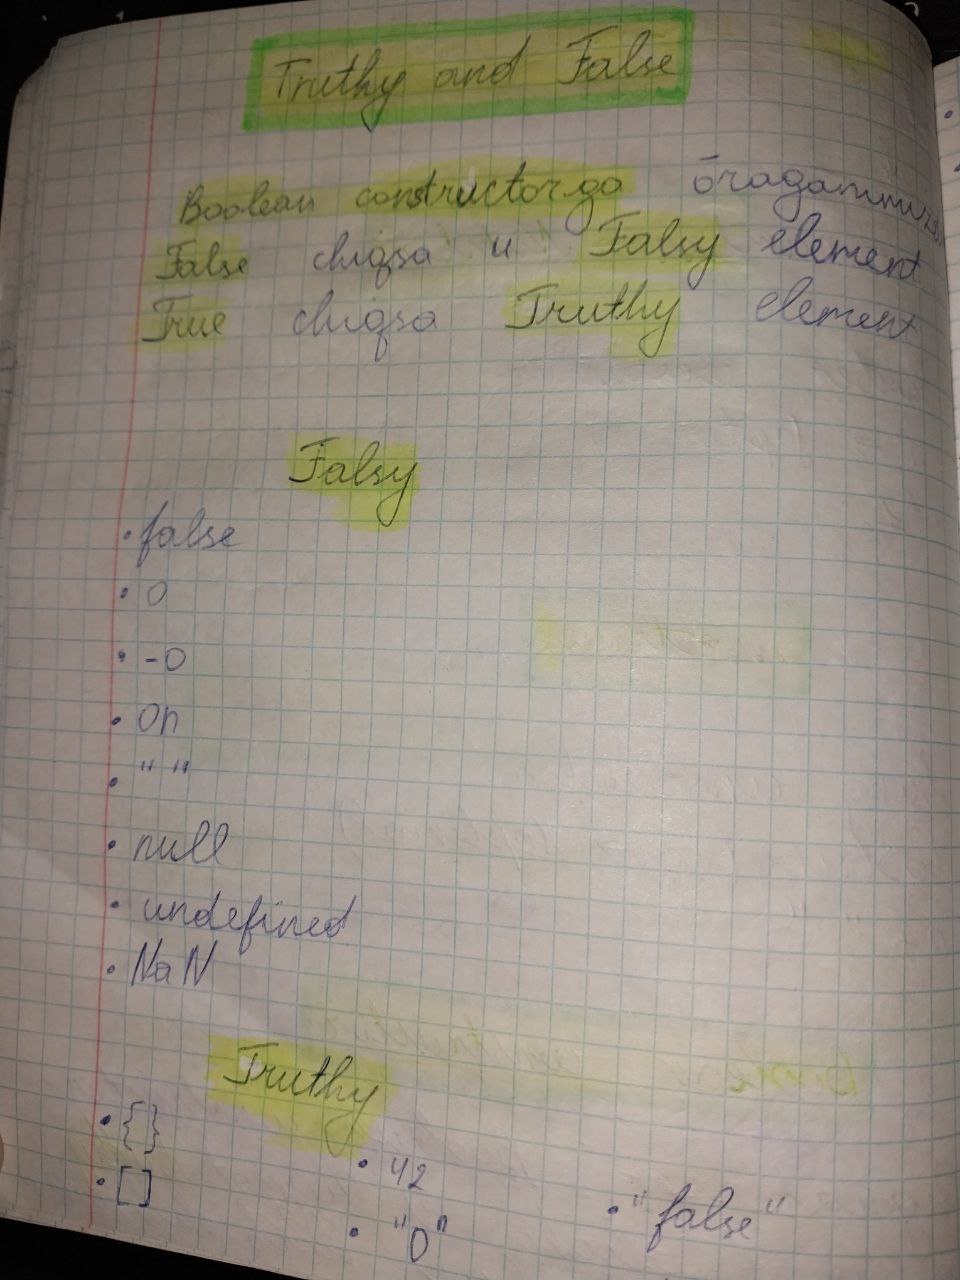 Truthy and False
Boolean constructorga
False chiqsa u Falsy element
True chiqsa Truthy element
Falsy
• false
• 0
• -0
• 0n
• " "
• null
• undefined
• NaN
Truthy
• {}
• []
• 42
• "0"
• "false"